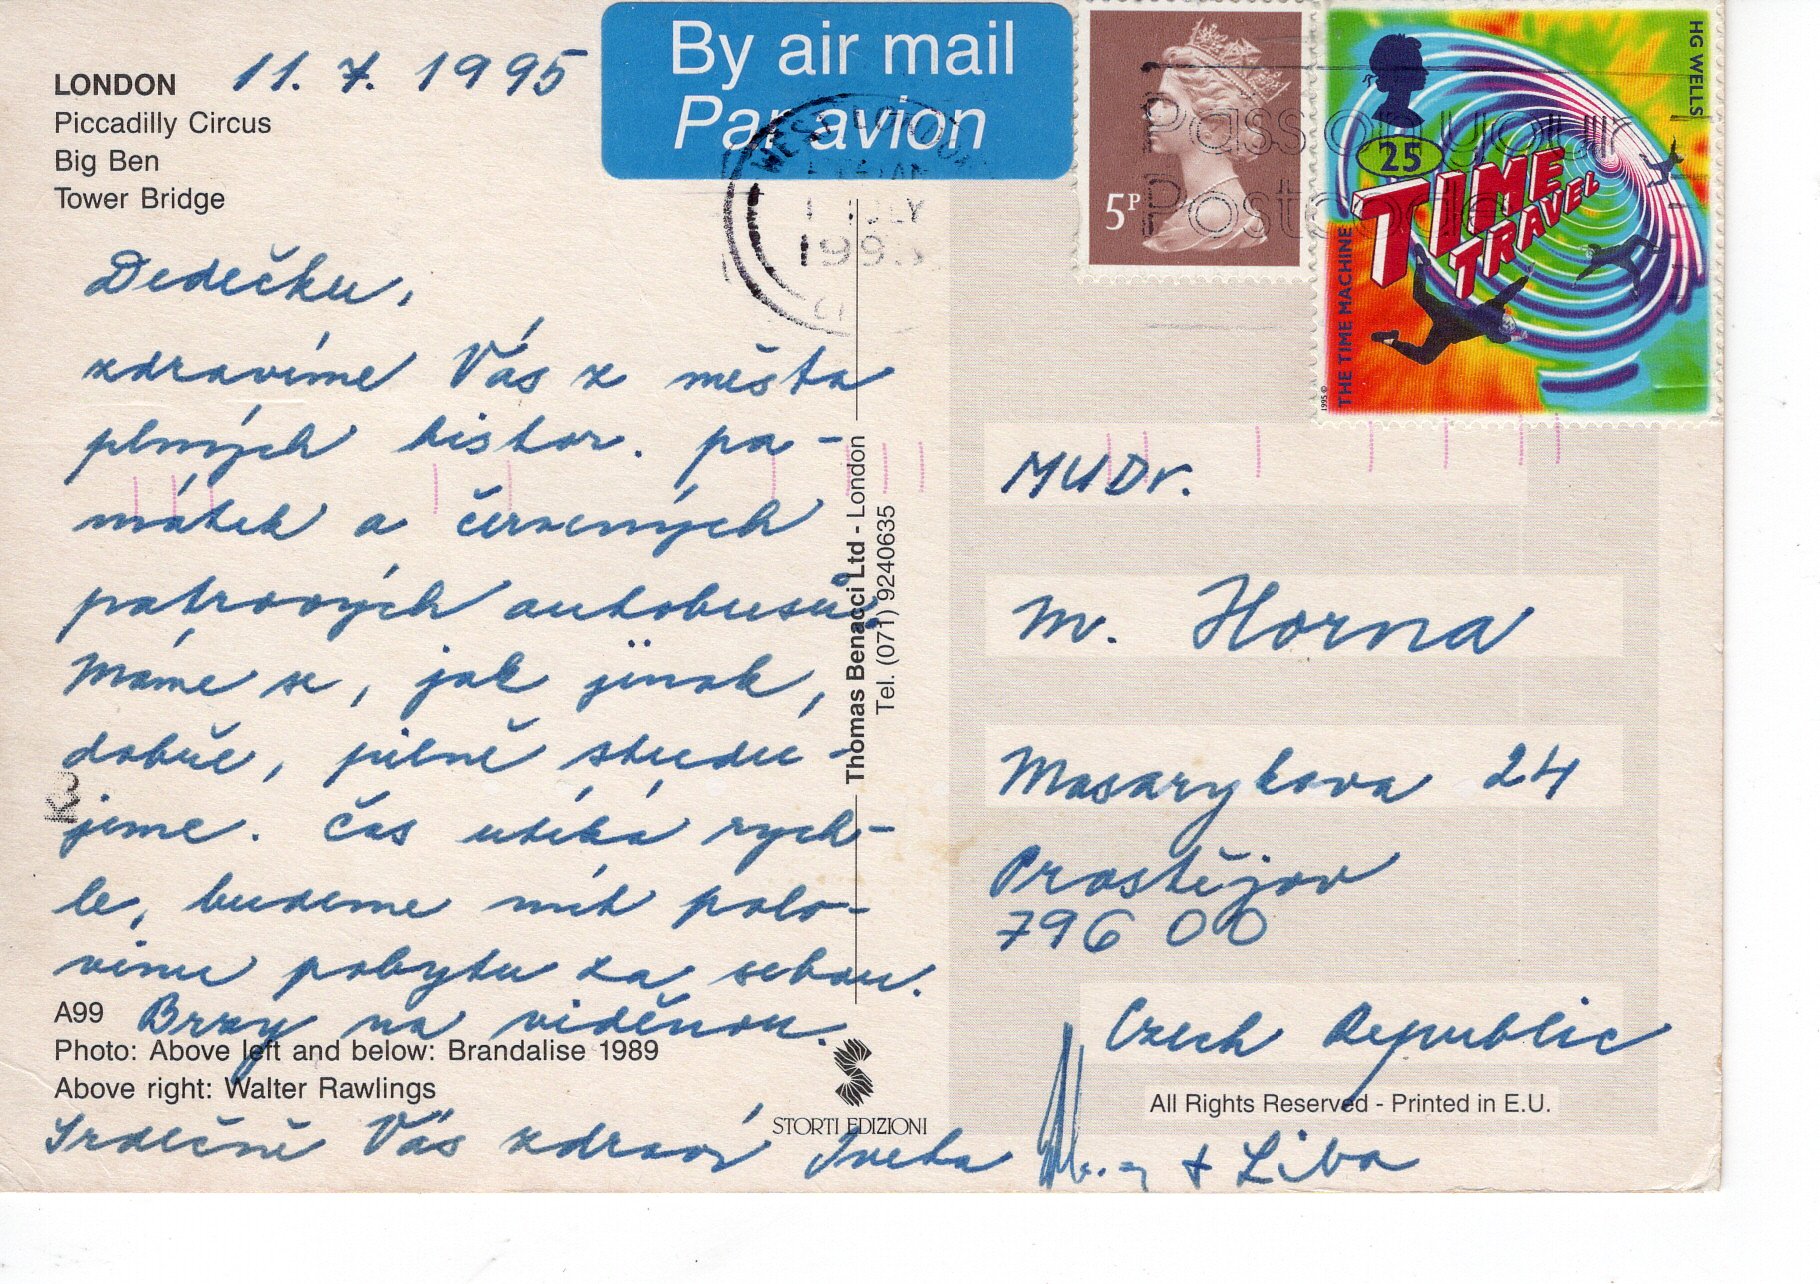 LONDON 11. 7. 1995
Piccadilly Circus
Big Ben
Tower Bridge
By air mail
Par avion
WEST LONDON
JULY
1995
5P
HG WELLS
25
TIME
TRAVEL
THE TIME MACHINE
1995 ©
Pass on your
Postcode
Dedečku,
zdravíme Vás z města
plných histor. pa-
mátek a červených
patrových autobusů.
Máme se, jak jinak,
dobře, pilně studu-
jeme. Čas utíká rych-
le, budeme mít polo-
vinu pobytu za sebou.
Brzy na viděnou.
Srdečně Vás zdraví Iveta + Liba
A99
Photo: Above left and below: Brandalise 1989
Above right: Walter Rawlings
Thomas Benacci Ltd - London
Tel. (071) 9240635
STORTI EDIZIONI
MUDr.
M. Horna
Masarykova 24
Prostějov
796 00
Czech Republic
All Rights Reserved - Printed in E.U.